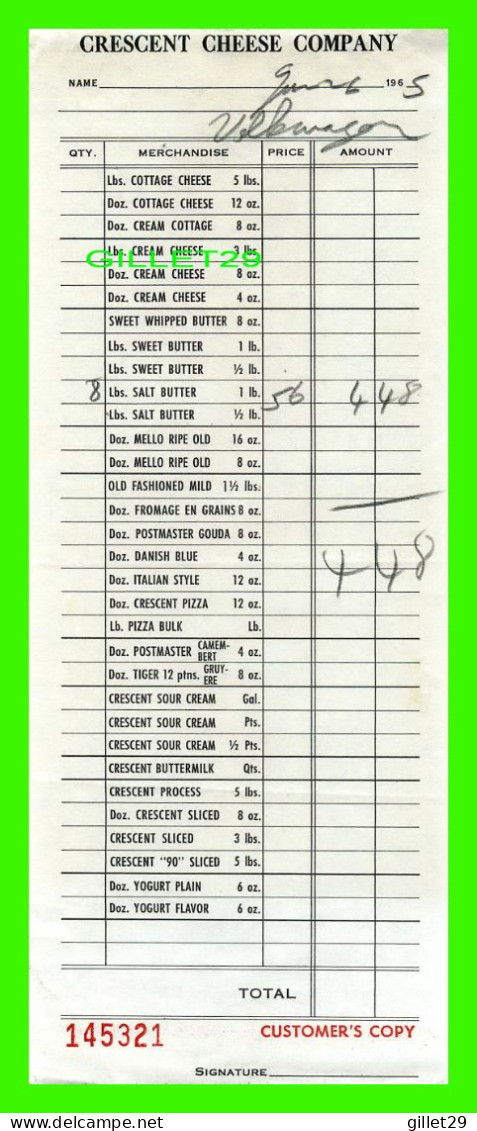 CRESCENT CHEESE COMPANY
NAME 196 5
Volkswagon
QTY. MERCHANDISE PRICE AMOUNT
Lbs. COTTAGE CHEESE 5 lbs.
Doz. COTTAGE CHEESE 12 oz.
Doz. CREAM COTTAGE 8 oz.
Lbs. CREAM CHEESE 3 lbs.
GILLET29
Doz. CREAM CHEESE 8 oz.
Doz. CREAM CHEESE 4 oz.
SWEET WHIPPED BUTTER 8 oz.
Lbs. SWEET BUTTER 1 lb.
Lbs. SWEET BUTTER ½ lb.
8 Lbs. SALT BUTTER 1 lb. 56 4 48
Lbs. SALT BUTTER ½ lb.
Doz. MELLO RIPE OLD 16 oz.
Doz. MELLO RIPE OLD 8 oz.
OLD FASHIONED MILD 1½ lbs.
Doz. FROMAGE EN GRAINS 8 oz.
Doz. POSTMASTER GOUDA 8 oz.
Doz. DANISH BLUE 4 oz. 4 48
Doz. ITALIAN STYLE 12 oz.
Doz. CRESCENT PIZZA 12 oz.
Lb. PIZZA BULK Lb.
Doz. POSTMASTER CAMEM-BERT 4 oz.
Doz. TIGER 12 ptns. GRUY-ERE 8 oz.
CRESCENT SOUR CREAM Gal.
CRESCENT SOUR CREAM Pts.
CRESCENT SOUR CREAM ½ Pts.
CRESCENT BUTTERMILK Qts.
CRESCENT PROCESS 5 lbs.
Doz. CRESCENT SLICED 8 oz.
CRESCENT SLICED 3 lbs.
CRESCENT "90" SLICED 5 lbs.
Doz. YOGURT PLAIN 6 oz.
Doz. YOGURT FLAVOR 6 oz.
TOTAL
145321 CUSTOMER'S COPY
SIGNATURE
© gillet29
delcampe.net